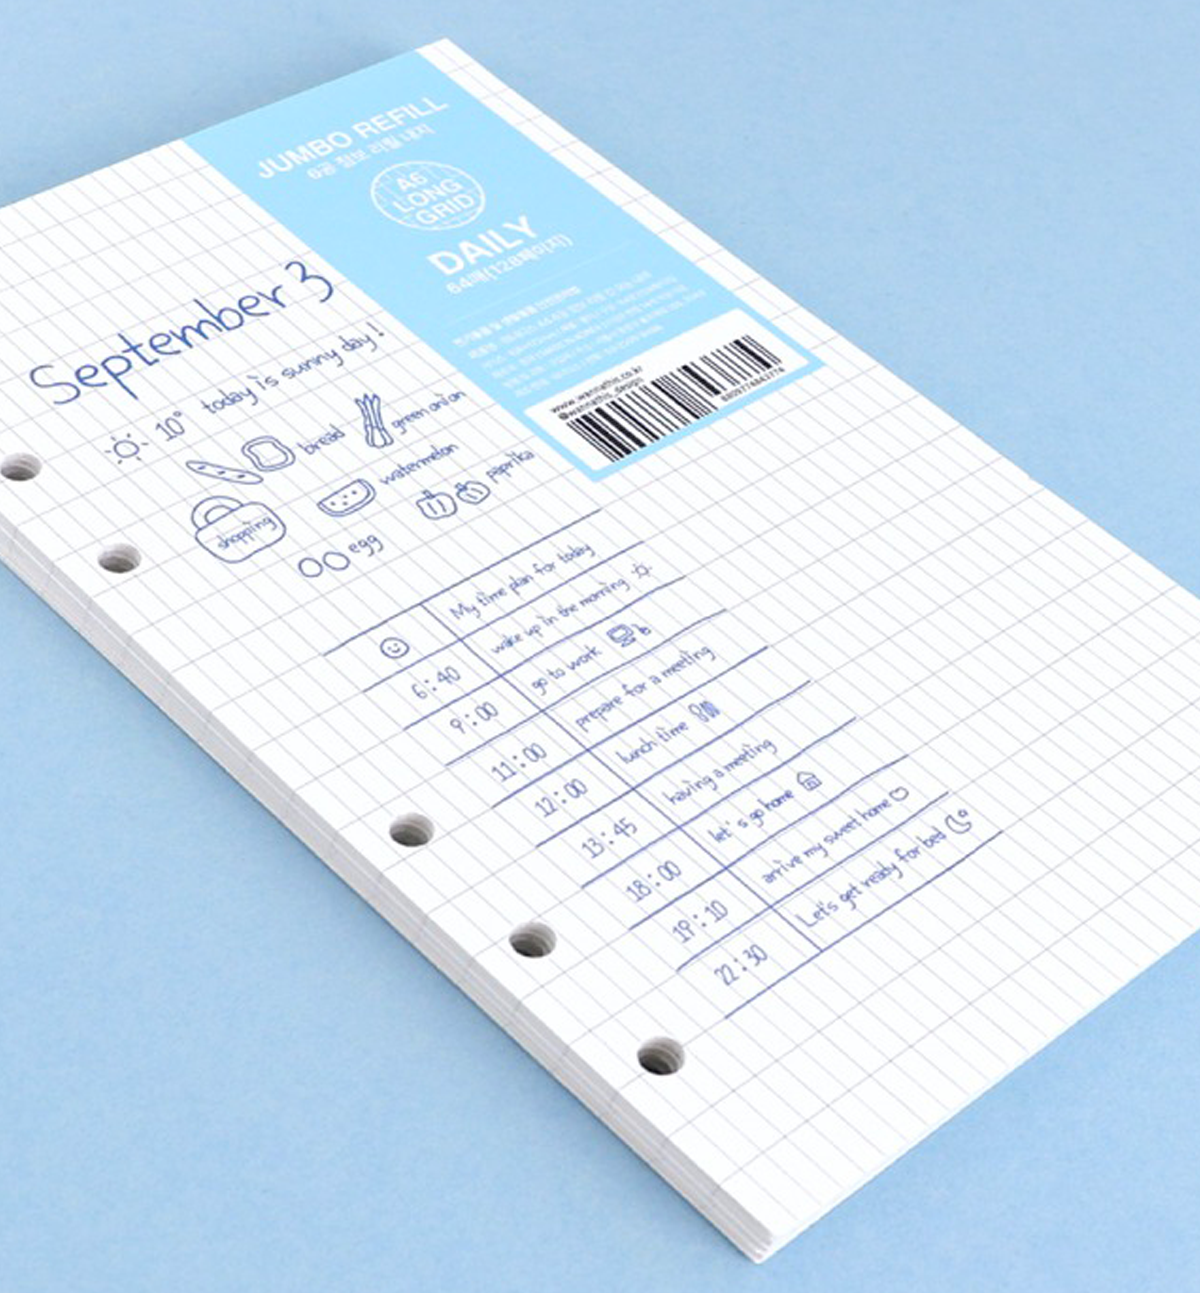 JUMBO REFILL
6공 점보 리필 내지
A6
LONG
GRID
DAILY
64매(128페이지)
www.wannathis.co.kr
@wannathis_design
September 3
10° today is sunny day!
bread
green onion
shopping
watermelon
paprika
egg
My time plan for today
6:40 wake up in the morning
9:00 go to work
11:00 prepare for a meeting
12:00 lunch time
13:45 having a meeting
18:00 let's go home
19:10 arrive my sweet home
22:30 Let's get ready for bed